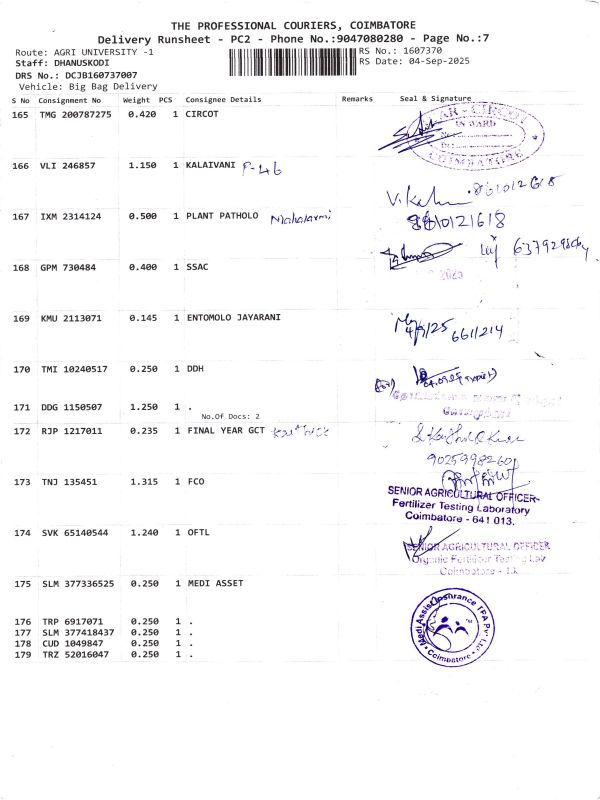 THE PROFESSIONAL COURIERS, COIMBATORE
Delivery Runsheet - PC2 - Phone No.:9047080280 - Page No.:7
Route: AGRI UNIVERSITY -1 RS No.: 1607370
Staff: DHANUSKODI RS Date: 04-Sep-2025
DRS No.: DCJB160737007
Vehicle: Big Bag Delivery
S No Consignment No Weight PCS Consignee Details Remarks Seal & Signature
165 TMG 200787275 0.420 1 CIRCOT
IN WARD
COIMBATORE
166 VLI 246857 1.150 1 KALAIVANI P-46
167 IXM 2314124 0.500 1 PLANT PATHOLO Mahalaxmi
8610121618
168 GPM 730484 0.400 1 SSAC
2025
169 KMU 2113071 0.145 1 ENTOMOLO JAYARANI
4/9/25 6611214
170 TMI 10240517 0.250 1 DDH
171 DDG 1150507 1.250 1 .
No.Of.Docs: 2
172 RJP 1217011 0.235 1 FINAL YEAR GCT
173 TNJ 135451 1.315 1 FCO
SENIOR AGRICULTURAL OFFICER
Fertilizer Testing Laboratory
Coimbatore - 641 013.
174 SVK 65140544 1.240 1 OFTL
SENIOR AGRICULTURAL OFFICER
Organic Fertilizer Testing Lab
Coimbatore - 13
175 SLM 377336525 0.250 1 MEDI ASSET
Medi Assist Insurance TPA Pvt. Ltd.
Coimbatore
176 TRP 6917071 0.250 1 .
177 SLM 377418437 0.250 1 .
178 CUD 1049847 0.250 1 .
179 TRZ 52016047 0.250 1 .